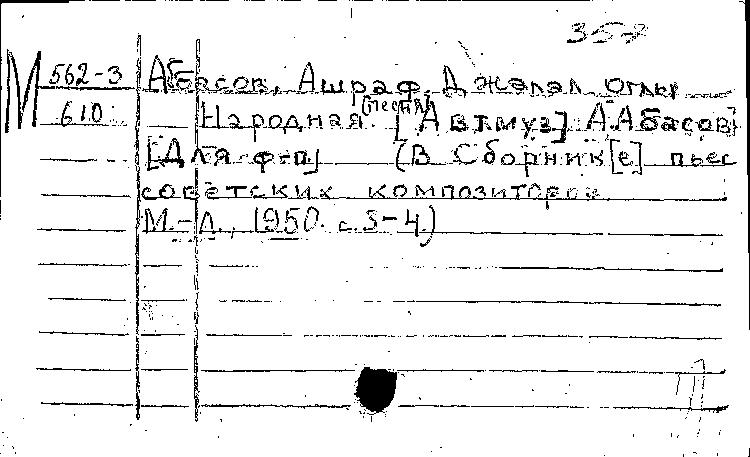 357
М 562-3 Абасов, Ашраф Джалал оглы
610 Народная (песня). [Авт.муз.] А.Абасов
[Для ф-п] (В Сборник[е] пьес
советских композиторов
М.-Л., 1950. с. 3-4.)